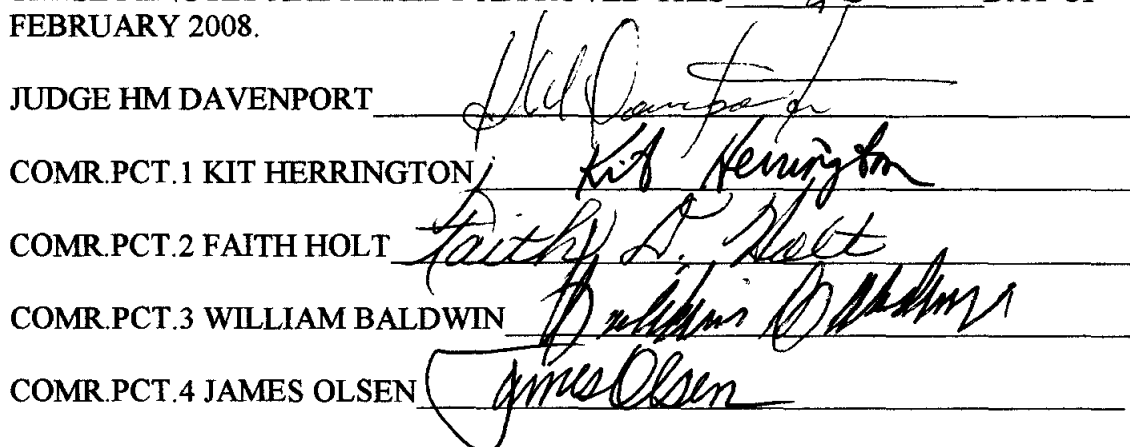 FEBRUARY 2008.
JUDGE HM DAVENPORT HM Davenport
COMR.PCT.1 KIT HERRINGTON Kit Herrington
COMR.PCT.2 FAITH HOLT Faith D. Holt
COMR.PCT.3 WILLIAM BALDWIN William Baldwin
COMR.PCT.4 JAMES OLSEN James Olsen